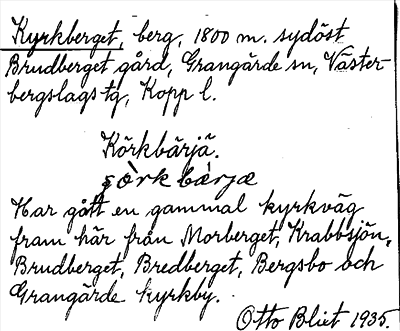 Kyrkberget, berg, 1800 m. sydöst
Brudberget gård, Grangärde sn, Väster-
bergslags tg, Kopp l.
Körkbärjä.
çòrkbærjæ
Har gått en gammal kyrkväg
fram här från Morberget, Krabbsjön,
Brudberget, Bredberget, Bergsbo och
Grangärde kyrkby.
Otto Blixt 1935.